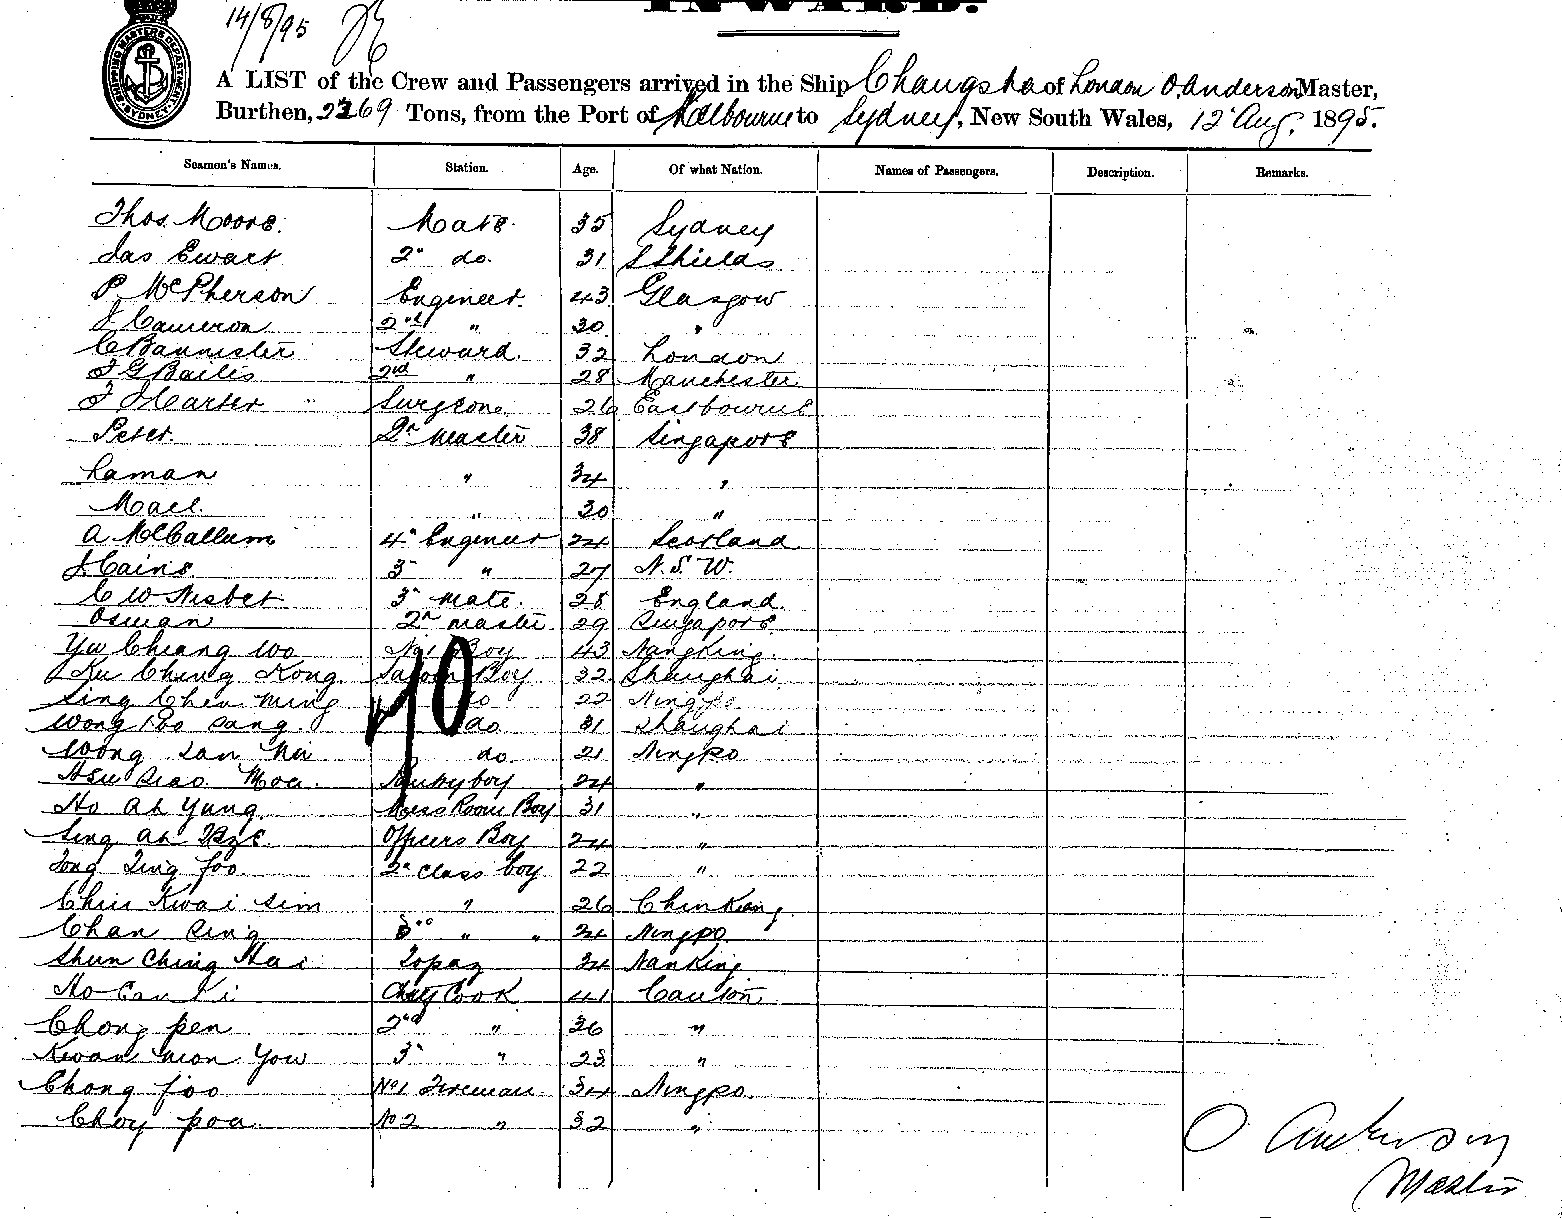 INWARD.
14/8/95
SHIPPING MASTERS DEPARTMENT SYDNEY
A LIST of the Crew and Passengers arrived in the Ship Changsha of London O. Anderson Master,
Burthen, 2269 Tons, from the Port of Melbourne to Sydney, New South Wales, 12 Aug. 1895.
Seamen's Names. Station. Age. Of what Nation. Names of Passengers. Description. Remarks.
Thos. Moore. Mate. 35 Sydney
Jas Ewart 2" do. 31 S Shields
P. McPherson Engineer. 43 Glasgow
J Cameron 2nd " 30 "
C Bannister Steward. 32 London
J G Bailis 2nd " 28 Manchester
F J Carter Surgeon 26 Eastbourne
Peter. 2r Master 38 Singapore
Laman " 34 "
Mael. " 30 "
A McCallum 4" Engineer 24 Scotland
J. Cains 3" " 27 N.S.W.
C W Nisbet 3" Mate. 28 England
Osman 2r master 29 Singapore
Yu Chiang Wo No 1 Boy 43 Nangking.
Ku Ching Kong Saloon Boy 32 Shanghai
Sing Chen Ming do 22 Ningpo
Wong Poo Sang do 31 Shanghai
Wong San do 21 Ningpo
Hsu Siao Moa Pantry boy 24 "
Ho Ah Yung Mess Room Boy 31 "
Sing Ah Officers Boy 24 "
Tong Ting foo 2" Class boy 22 "
Chiu Kwai Sim " 26 Chinkiang
Chan Sing 3" " " 24 Ningpo
Shun Ching Hai Topaz 34 NanKing
Ho Cook 41 Canton
Chong pen 2nd " 36 "
Kwan Mon You 3" " 23 "
Chong foo No 1 Fireman 34 Ningpo.
Choy poa No 2 " 32 "
40
O Anderson
Master